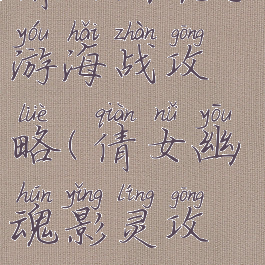 yóu hǎi zhàn gōng
游海战攻
lüè qiàn nǚ yōu
略(倩女幽
hún yǐng líng gōng
魂影灵攻